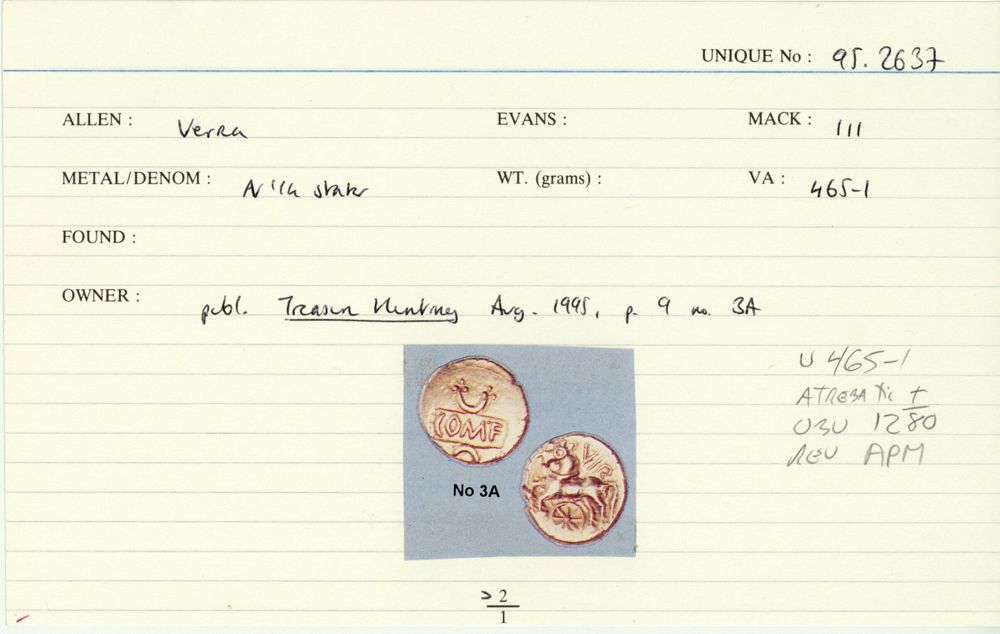 UNIQUE No : 95.2637
ALLEN : Verica EVANS : MACK : 111
METAL/DENOM : stater WT. (grams) : VA : 465-1
FOUND :
OWNER : publ. Treasure Hunting Aug. 1995, p. 9 no. 3A
COMF
VIR
No 3A
465-1
ATREBATIC
1280
REV APM
> 2
1